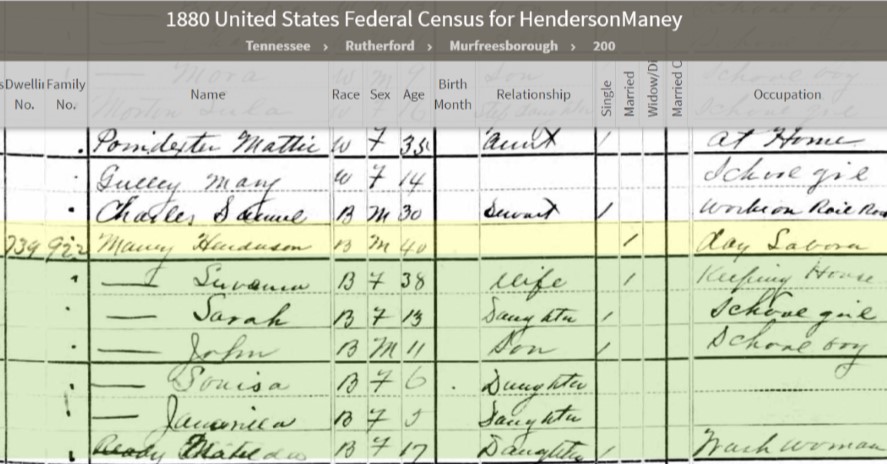 1880 United States Federal Census for HendersonManey
Tennessee > Rutherford > Murfreesborough > 200
Dwelling No. Family No. Name Race Sex Age Birth Month Relationship Single Married Widow/Di Married C Occupation
Poindexter Mattie W F 35 Aunt / At Home
Gulley Mary W F 14 School girl
Charles Samuel B M 30 Servant / Work on Rail Roa
739 922 Maney Henderson B M 40 / day Labora
— B F 38 Wife / Keeping House
— Sarah B F 13 Daughter / School girl
— John B M 11 Son / School boy
— Louisa B F 6 Daughter
— B F 5 Daughter
Ready Matilda B F 17 Daughter / Wash woman